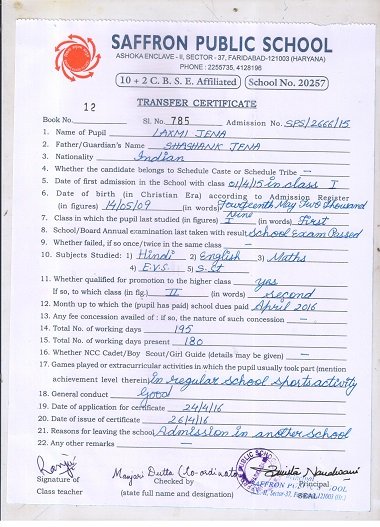 SAFFRON PUBLIC SCHOOL
ASHOKA ENCLAVE - II, SECTOR - 37, FARIDABAD-121003 (HARYANA)
PHONE : 2255735, 4128196
10 + 2 C. B. S. E. Affiliated School No. 20257
TRANSFER CERTIFICATE
12
Book No. Sl. No. 785 Admission No. SPS/2666/15
1. Name of Pupil LAXMI JENA
2. Father/Guardian's Name SHASHANK JENA
3. Nationality Indian
4. Whether the candidate belongs to Schedule Caste or Schedule Tribe —
5. Date of first admission in the School with class 01/4/15 in class I
6. Date of birth (in Christian Era) according to Admission Register
(in figures) 14/05/09 (in words) Fourteenth May Two thousand Nine
7. Class in which the pupil last studied (in figures) I (in words) First
8. School/Board Annual examination last taken with result School Exam Passed
9. Whether failed, if so once/twice in the same class —
10. Subjects Studied : 1) Hindi 2) English 3) Maths
4) E.V.S 5) S.st
11. Whether qualified for promotion to the higher class yes
If so, to which class (in fig.) II (in words) second
12. Month up to the (pupil has paid) school dues paid April 2016
13. Any fee concession availed of : if so, the nature of such concession —
14. Total No. of working days 195
15. Total No. of working days present 180
16. Whether NCC Cadet/Boy Scout/Girl Guide (details may be given) —
17. Games played or extracurricular activities in which the pupil usually took part (mention
achievement level therein) In regular school sports activity
18. General conduct Good
19. Date of application for certificate 24/4/16
20. Date of issue of certificate 26/4/16
21. Reasons for leaving the school Admission in another school
22. Any other remarks
Manjari Dutta (Co-ordinator)
Signature of Checked by Principal
Class teacher (state full name and designation) SEAL